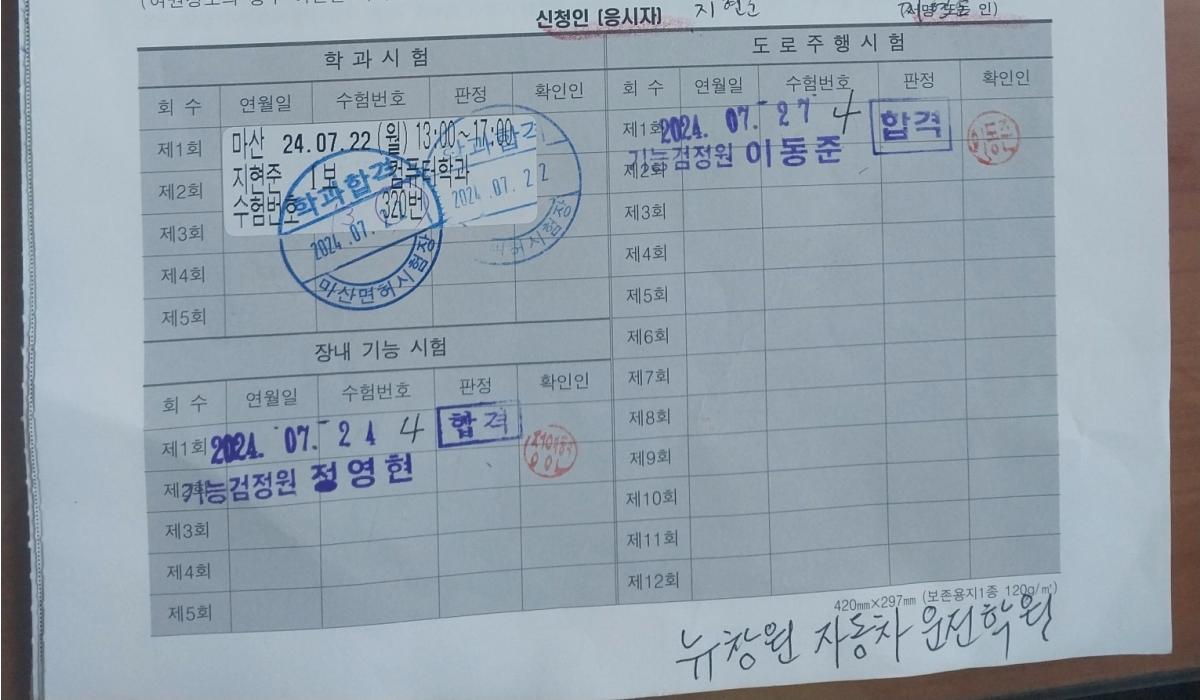 신청인 (응시자) 지현준 (서명 또는 인)
학 과 시 험
회 수 연월일 수험번호 판정 확인인
제1회 마산 24.07.22(월) 13:00~17:00
제2회 지현준 1보 컴퓨터학과
수험번호 320번
제3회
제4회
제5회
학과합격
2024.07.
마산면허시험장
2024.07.22
면허시험장
장내 기능 시험
회 수 연월일 수험번호 판정 확인인
제1회 2024. 07. 24 4 합격
제2회 기능검정원 정영현
제3회
제4회
제5회
도 로 주 행 시 험
회 수 연월일 수험번호 판정 확인인
제1회 2024. 07. 27 4 합격
제2회 기능검정원 이동준
제3회
제4회
제5회
제6회
제7회
제8회
제9회
제10회
제11회
제12회
420mm×297mm (보존용지1종 120g/㎡)
뉴창원 자동차 운전학원